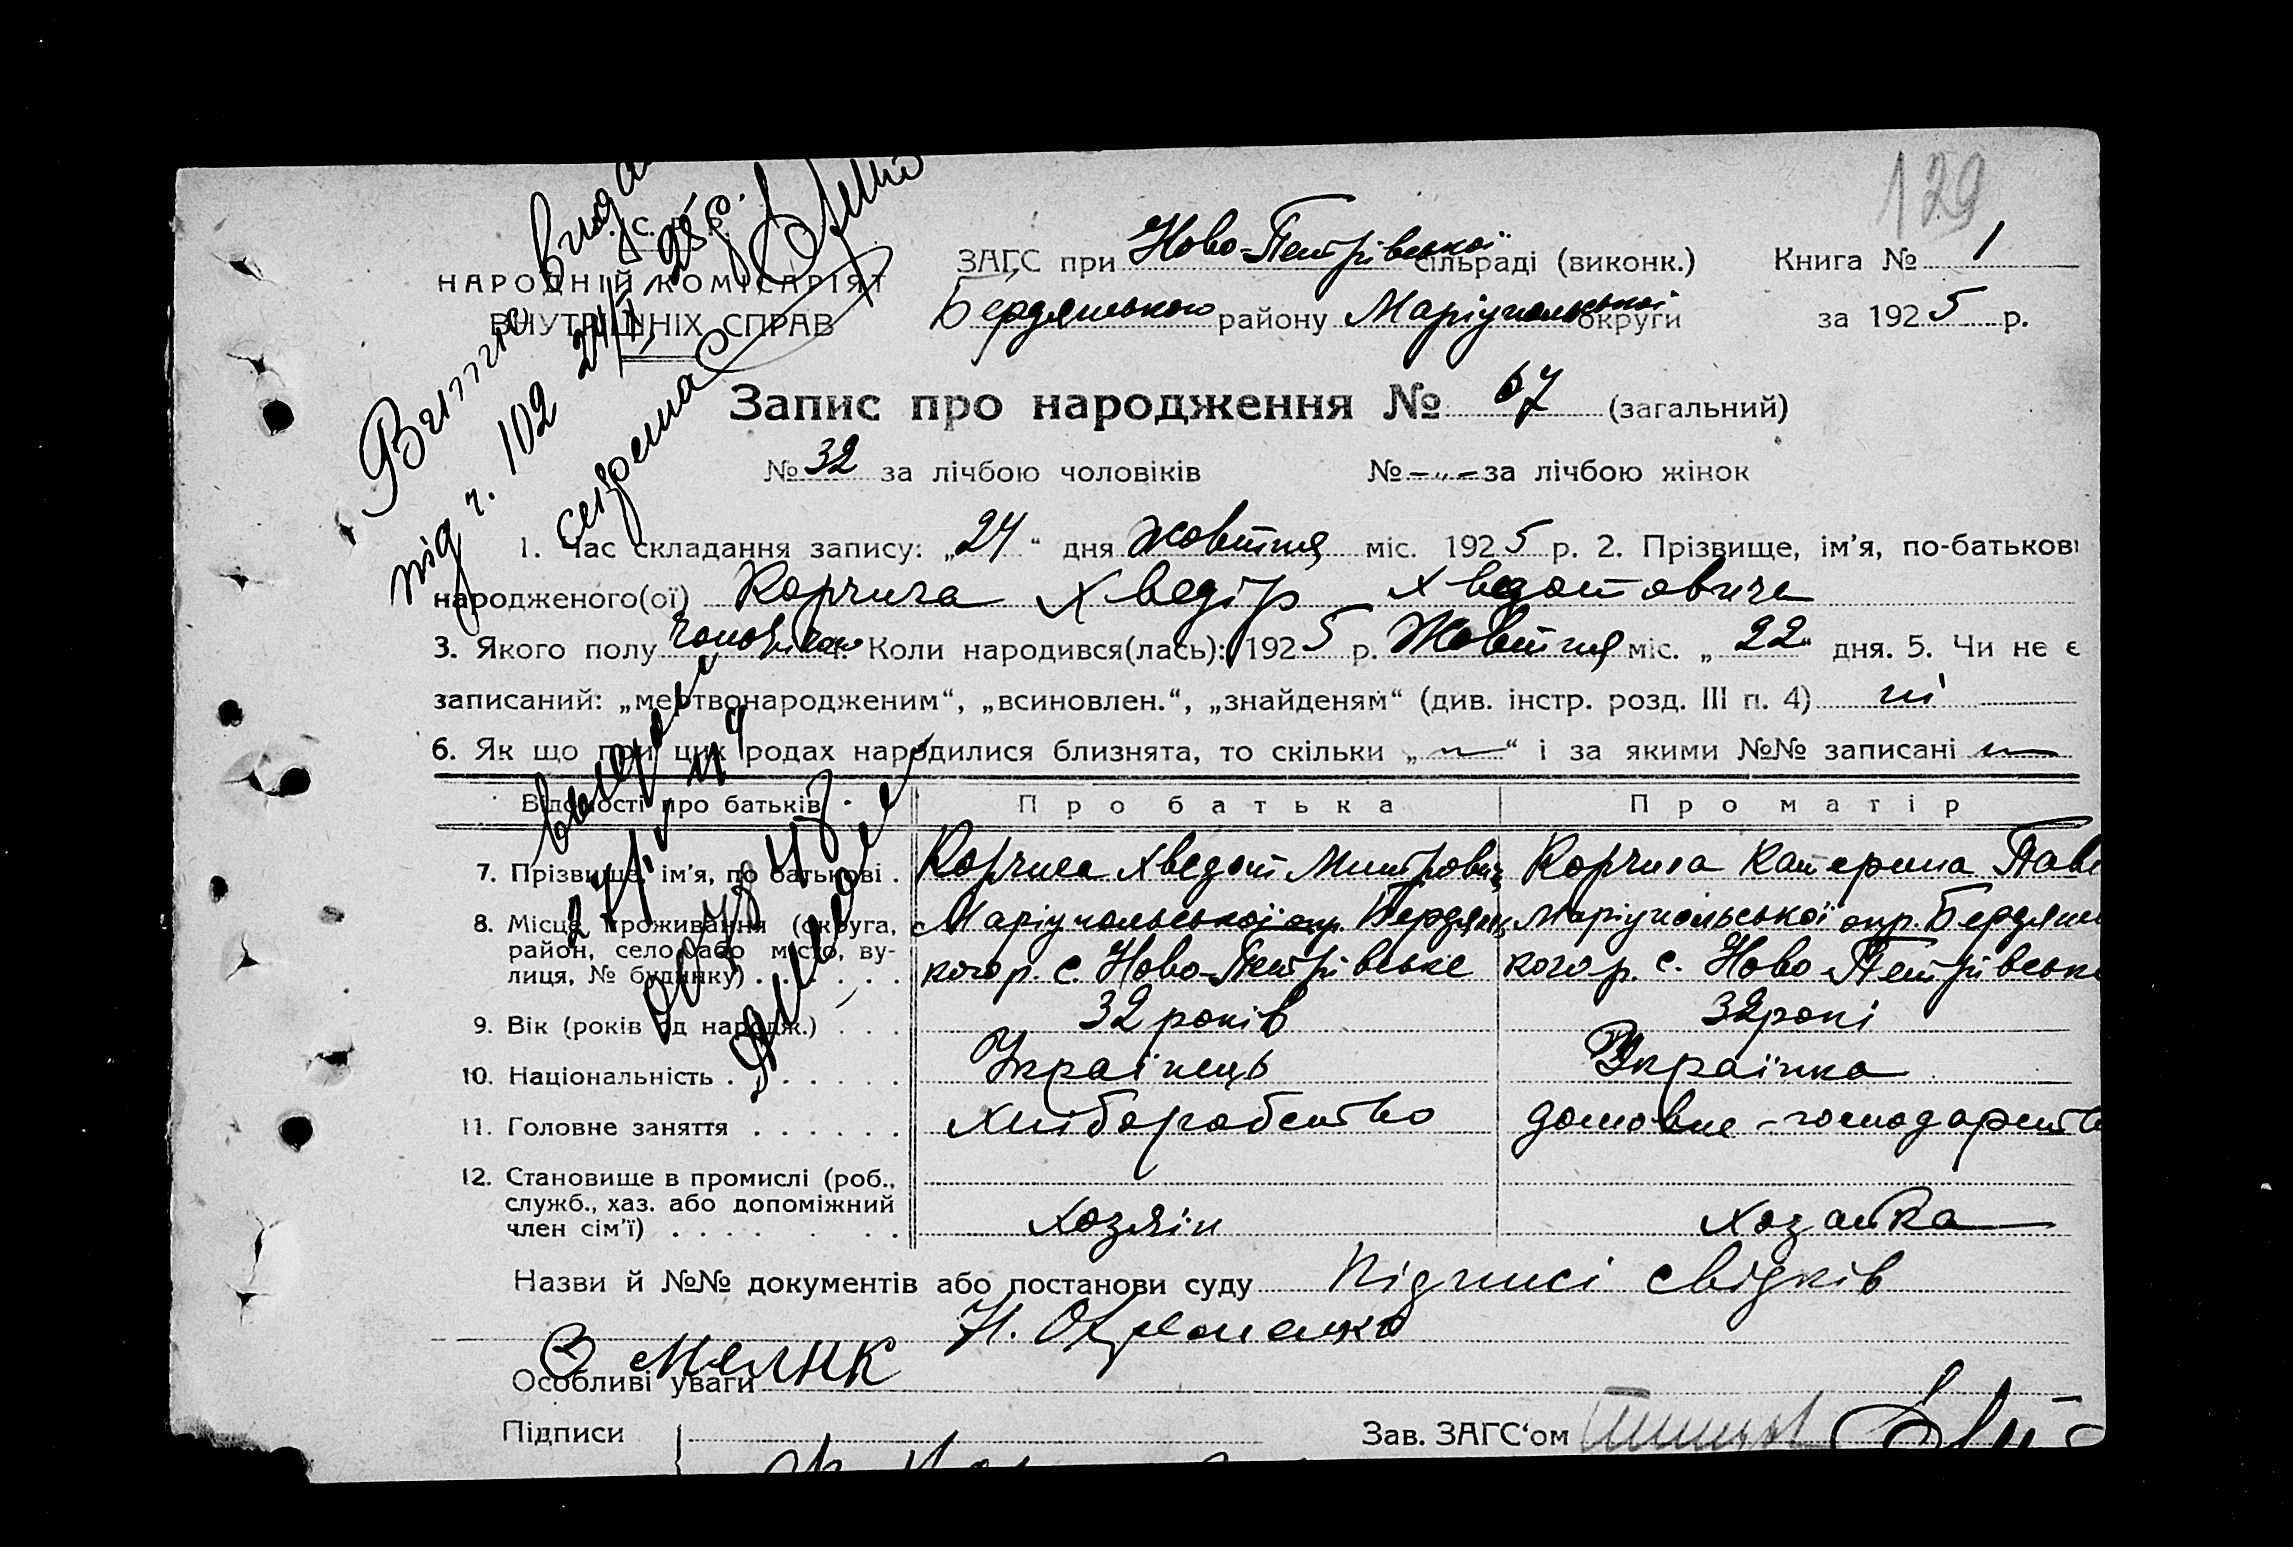 129
У.С.Р.Р.
НАРОДНІЙ КОМІСАРІЯТ
ВНУТРІШНІХ СПРАВ
ЗАГС при Ново-Петрівської сільраді (виконк.) Книга № 1
Бердянського району Маріупольської округи за 1925 р.
Запис про народження № 67 (загальний)
№ 32 за лічбою чоловіків № -„- за лічбою жінок
під ч. 102
1. Час складання запису: „24“ дня Жовтня міс. 1925 р. 2. Прізвище, ім'я, по-батькові
народженого(ої) Корчига Хведір Хведотович
3. Якого полу 4. Коли народився(лась): 1925 р. Жовтня міс. „22“ дня. 5. Чи не є
записаний: „мертвонародженим“, „всиновлен.“, „знайденям“ (див. інстр. розд. III п. 4) ні
6. Як що при цих родах народилися близнята, то скільки „—“ і за якими №№ записані —
Відомості про батьків Про батька Про матір
7. Прізвище, ім'я, по батькові . Корчига Хведот Митрович Корчига Катерина Павл
8. Місце проживання (округа, Маріупольської окр. Бердянс Маріупольської окр. Бердянс
район, село або місто, ву-
лиця, № будинку) . . . . . . кого р. с. Ново-Петрівське кого р. с. Ново-Петрівськ
9. Вік (років од народж.) . . . 32 років 32 роки
10. Національність . . . . . . Українець Українка
11. Головне заняття . . . . . . Хліборобство домовне-господарств
12. Становище в промислі (роб.,
служб., хаз. або допоміжний
член сім'ї) . . . . . . . Хозяін Хозайка
Назви й №№ документів або постанови суду Підписі свідків
Н.
Мелник
Особливі уваги
Підписи Зав. ЗАГС'ом